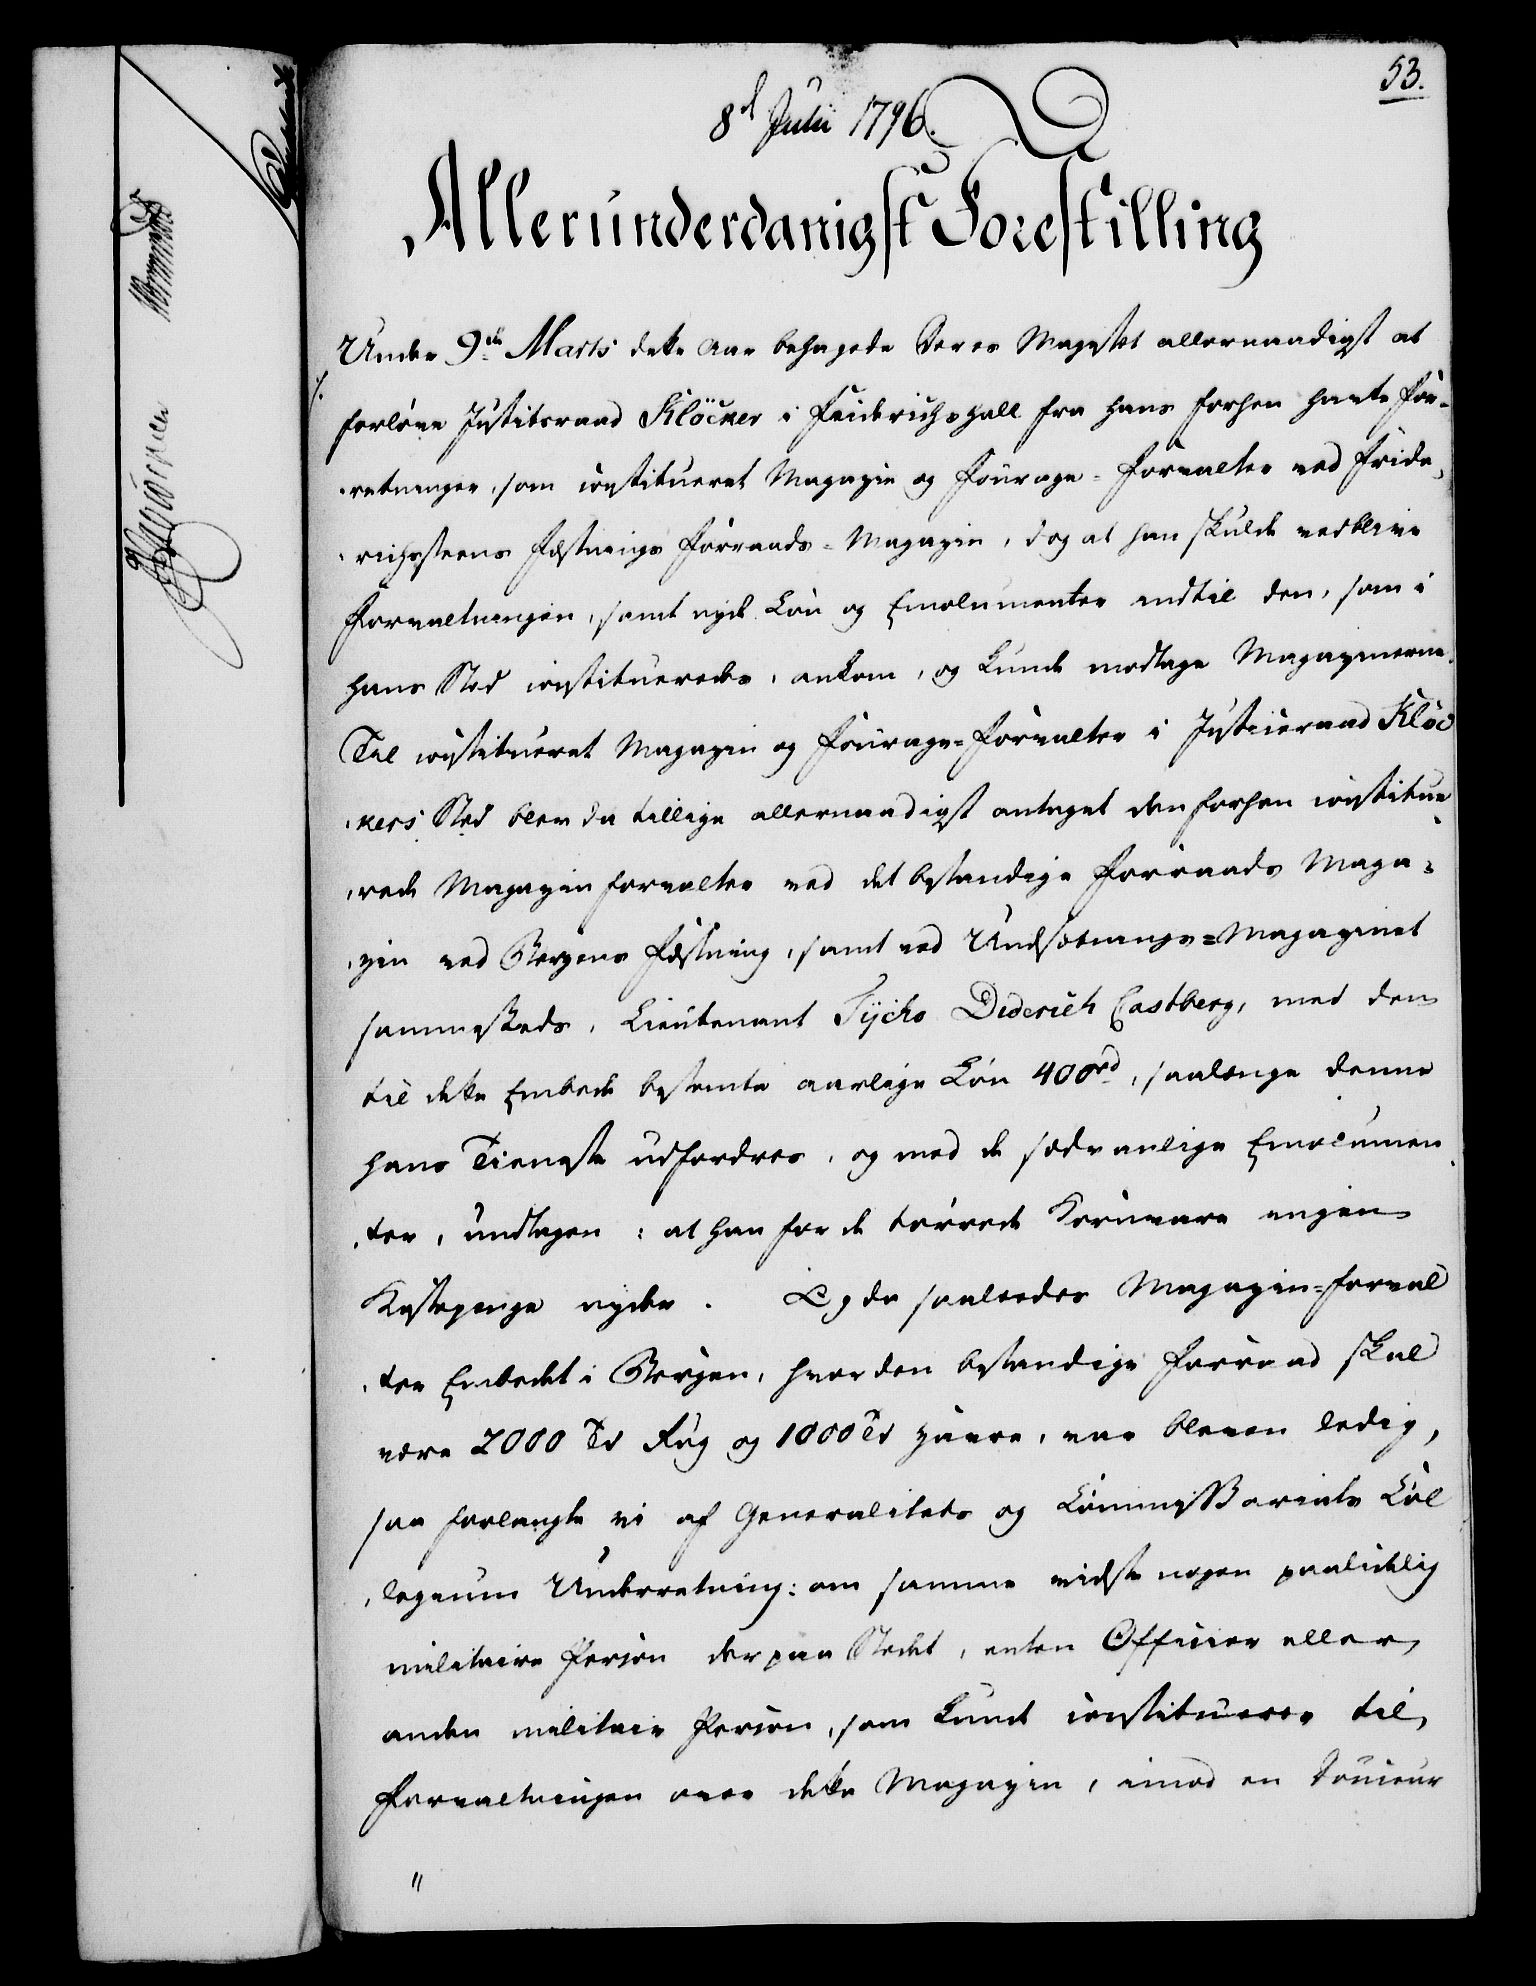 53.
8d Julii 1796.
Allerunderdanigst Forestilling
Under 9de Marts dette Aar behagede Deres Majestet allernaadigst at
forløve Justitsraad Klöcker i Friderichshall fra hans forhen havte For-
retninger, som constitueret Magazin og Fourage-Forvalter ved Fride-
richssteens Fæstnings Forraads-Magazin, dog at han skulde vedblive
Forvaltningen, samt nyde Løn og Emolumenter indtil den, som i
hans Sted constitueredes, ankom, og kunde modtage Magazinerne.
Til constitueret Magazin og Fourage-Forvalter i Justiceraad Klöc
kers Sted blev da tillige allernaadigst antaget den forhen constitue
rede Magazinforvalter ved det bestandige Forraads Maga-
zin ved Bergens Fæstning, samt ved Undsætnings-Magazinet
sammesteds, Lieutenant Tycho Diderich Castberg, med den
til dette Embede bestemte aarlige Løn 400rd, saalænge denne
hans Tieneste udfordres, og med de sædvanlige Emolumen
ter, undtagen: at han for de tørrede Kornvare ingen
Kastepenge nyder. Og da saaledes Magazin-Forval
ter Embedet i Bergen, hvor den bestandige Forraad skal
være 2000 Td Rug og 1000 Td Havre, var bleven ledig,
saa forlangte vi af Generalitets og Commissariats Col
legium Underretning: om samme vidste nogen paalidelig
militaire Person der paa Stedet, enten Officier eller
anden militair Person, som kunde constitueres til
Forvaltningen over dette Magazin, imod en Douceur
"